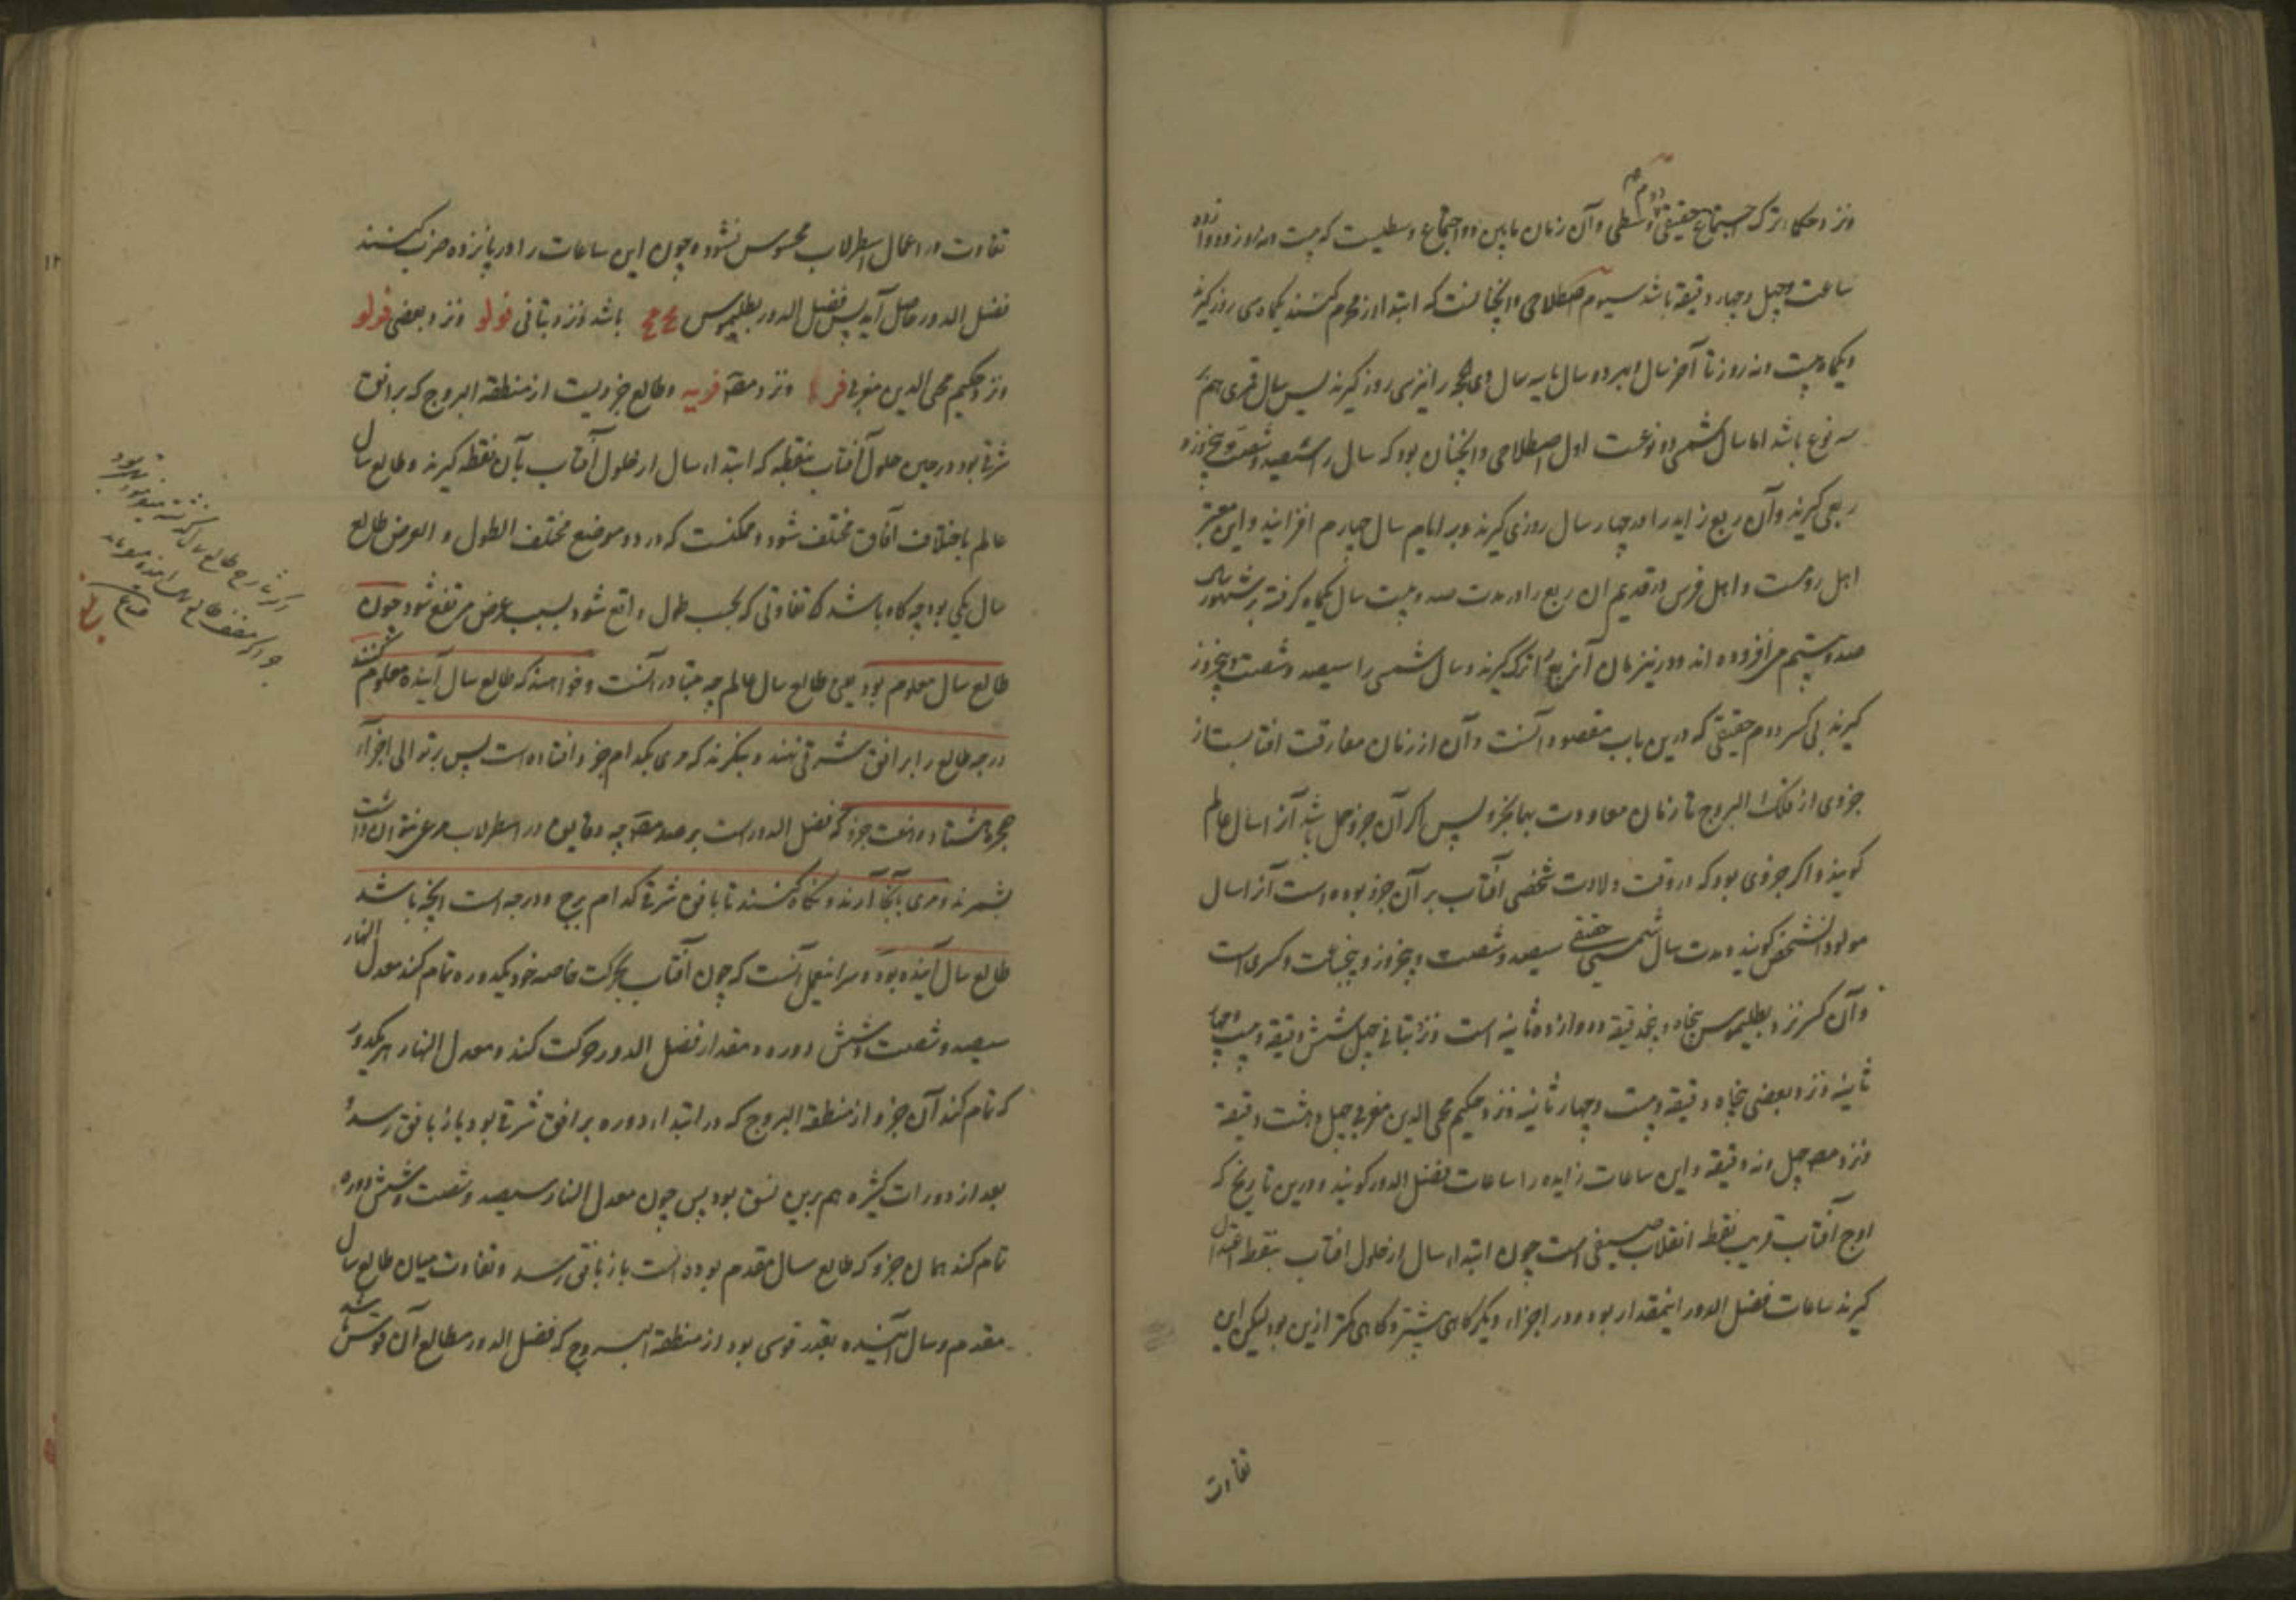 ونزد حکماء ترک اجتماع حقیقی دوم وسطی وآن زمان مابین دو اجتماع وسطیست که بیست ونه روز ودوازده
ساعت وچهل وچهار دقیقه باشد سیوم اصطلاحی وانچنانست که ابتدا از محرم کنند یکماه سی روز گیرند
ویکماه بیست ونه روز تا آخر سال وبهر دو سال یا سه سال ذی الحجه را نیز سی روز گیرند پس سال قمری هم
سه نوع باشد اما سال شمسی دو نوعست اول اصطلاحی وانچنان بود که سال را سیصد وشصت وپنجروز و
ربعی گیرند وآن ربع زاید را در چهار سال روزی گیرند وبر ایام سال چهارم افزایند واین معتبر
اهل رومست واهل فرس در قدیم ان ربع را در مدت صد وبیست سال یکماه گرفته بر شهور سال
صد وبیستم می افزوده اند ودرین زمان آن ربع را ترک گیرند وسال شمسی را سیصد وشصت وپنجروز
گیرند بی کسر دوم حقیقی که درین باب مقصود آنست وآن از زمان مفارقت افتابست از
جزوی از فلک البروج تا زمان معاودت بهمانجزو پس اگر آن جزو حمل باشد آنرا سال عالم
گویند واگر جزوی بود که در وقت ولادت شخصی آفتاب بر آن جزو بوده است آنرا سال
مولود آنشخص گویند ومدت سال شمسی حقیقی سیصد وشصت وپنجروز وپنجساعت وکسری است
وآن کسر نزد بطلیموس پنجاه وپنجدقیقه ودوازده ثانیه است ونزد بتانی چهل وشش دقیقه وبیست وچهار
ثانیه ونزد بعضی پنجاه دقیقه وبیست وچهار ثانیه ونزد حکیم محی الدین مغربی چهل وهشت دقیقه
ونزد مصر چهل ونه دقیقه واین ساعات زایده را ساعات فضل الدور گویند ودرین تاریخ که
اوج آفتاب قریب نقطه انقلاب صیفی است چون ابتداء سال از حلول افتاب بنقطه اعتدال
گیرند ساعات فضل الدور اینمقدار بود ودر اجزاء دیگر گاهی بیشتر وگاهی کمتر ازین بود لیکن این
تفاوت
تفاوت در اعمال اسطرلاب محسوس نشود وچون این ساعات را در پانزده ضرب کنند
فضل الدور حاصل آید پس فضل الدور بطلیموس باشد ونزد بتانی فولو ونزد بعضی فولو
ونزد حکیم محی الدین مغربی ونزد مصه فویه وطالع جزویست از منطقة البروج که بر افق
شرقی بود در حین حلول آفتاب بنقطه که ابتداء سال از حلول آفتاب بآن نقطه گیرند وطالع سال
عالم باختلاف آفاق مختلف شود وممکنست که در دو موضع مختلف الطول و العرض طالع
سال یکی بود چه گاه باشد که تفاوتی که بحسب طول واقع شود بسبب عرض مرتفع شود چون
طالع سال معلوم بود یعنی طالع سال عالم چه متبادر آنست وخواهند که طالع سال آینده معلوم کنند
درجه طالع را بر افق شرقی نهند وبنگرند که مری بکدام جزو افتاده است پس بر توالی اجزاء
حجره هشتاد وهفت جزو که فضل الدور است بر صد مصه چه دقایق در اسطرلاب مرعی نتوان داشت
بشمرند ومری بآنجا آرند ونگاه کنند تا بافق شرقی کدام برج ودرجه است انچه باشد
طالع سال آینده بود وسر اینعمل آنست که چون آفتاب بحرکت خاصه خود یکدوره تمام کند معدل النهار
سیصد وشصت وشش دوره ومقدار فضل الدور حرکت کند ومعدل النهار هر یکدور
که تمام کند آن جزو از منطقة البروج که در ابتداء دوره بر افق شرقی بود باز بافق رسد و
بعد از دورات کثیره هم برین نسق بود پس چون معدل النهار سیصد وشصت وشش دوره
تمام کند همان جزو که طالع سال مقدم بوده است باز بافق رسد وتفاوت میان طالع سال
مقدم وسال آینده بقدر قوسی بود از منطقة البروج که فضل الدور مطالع آن قوس باشد